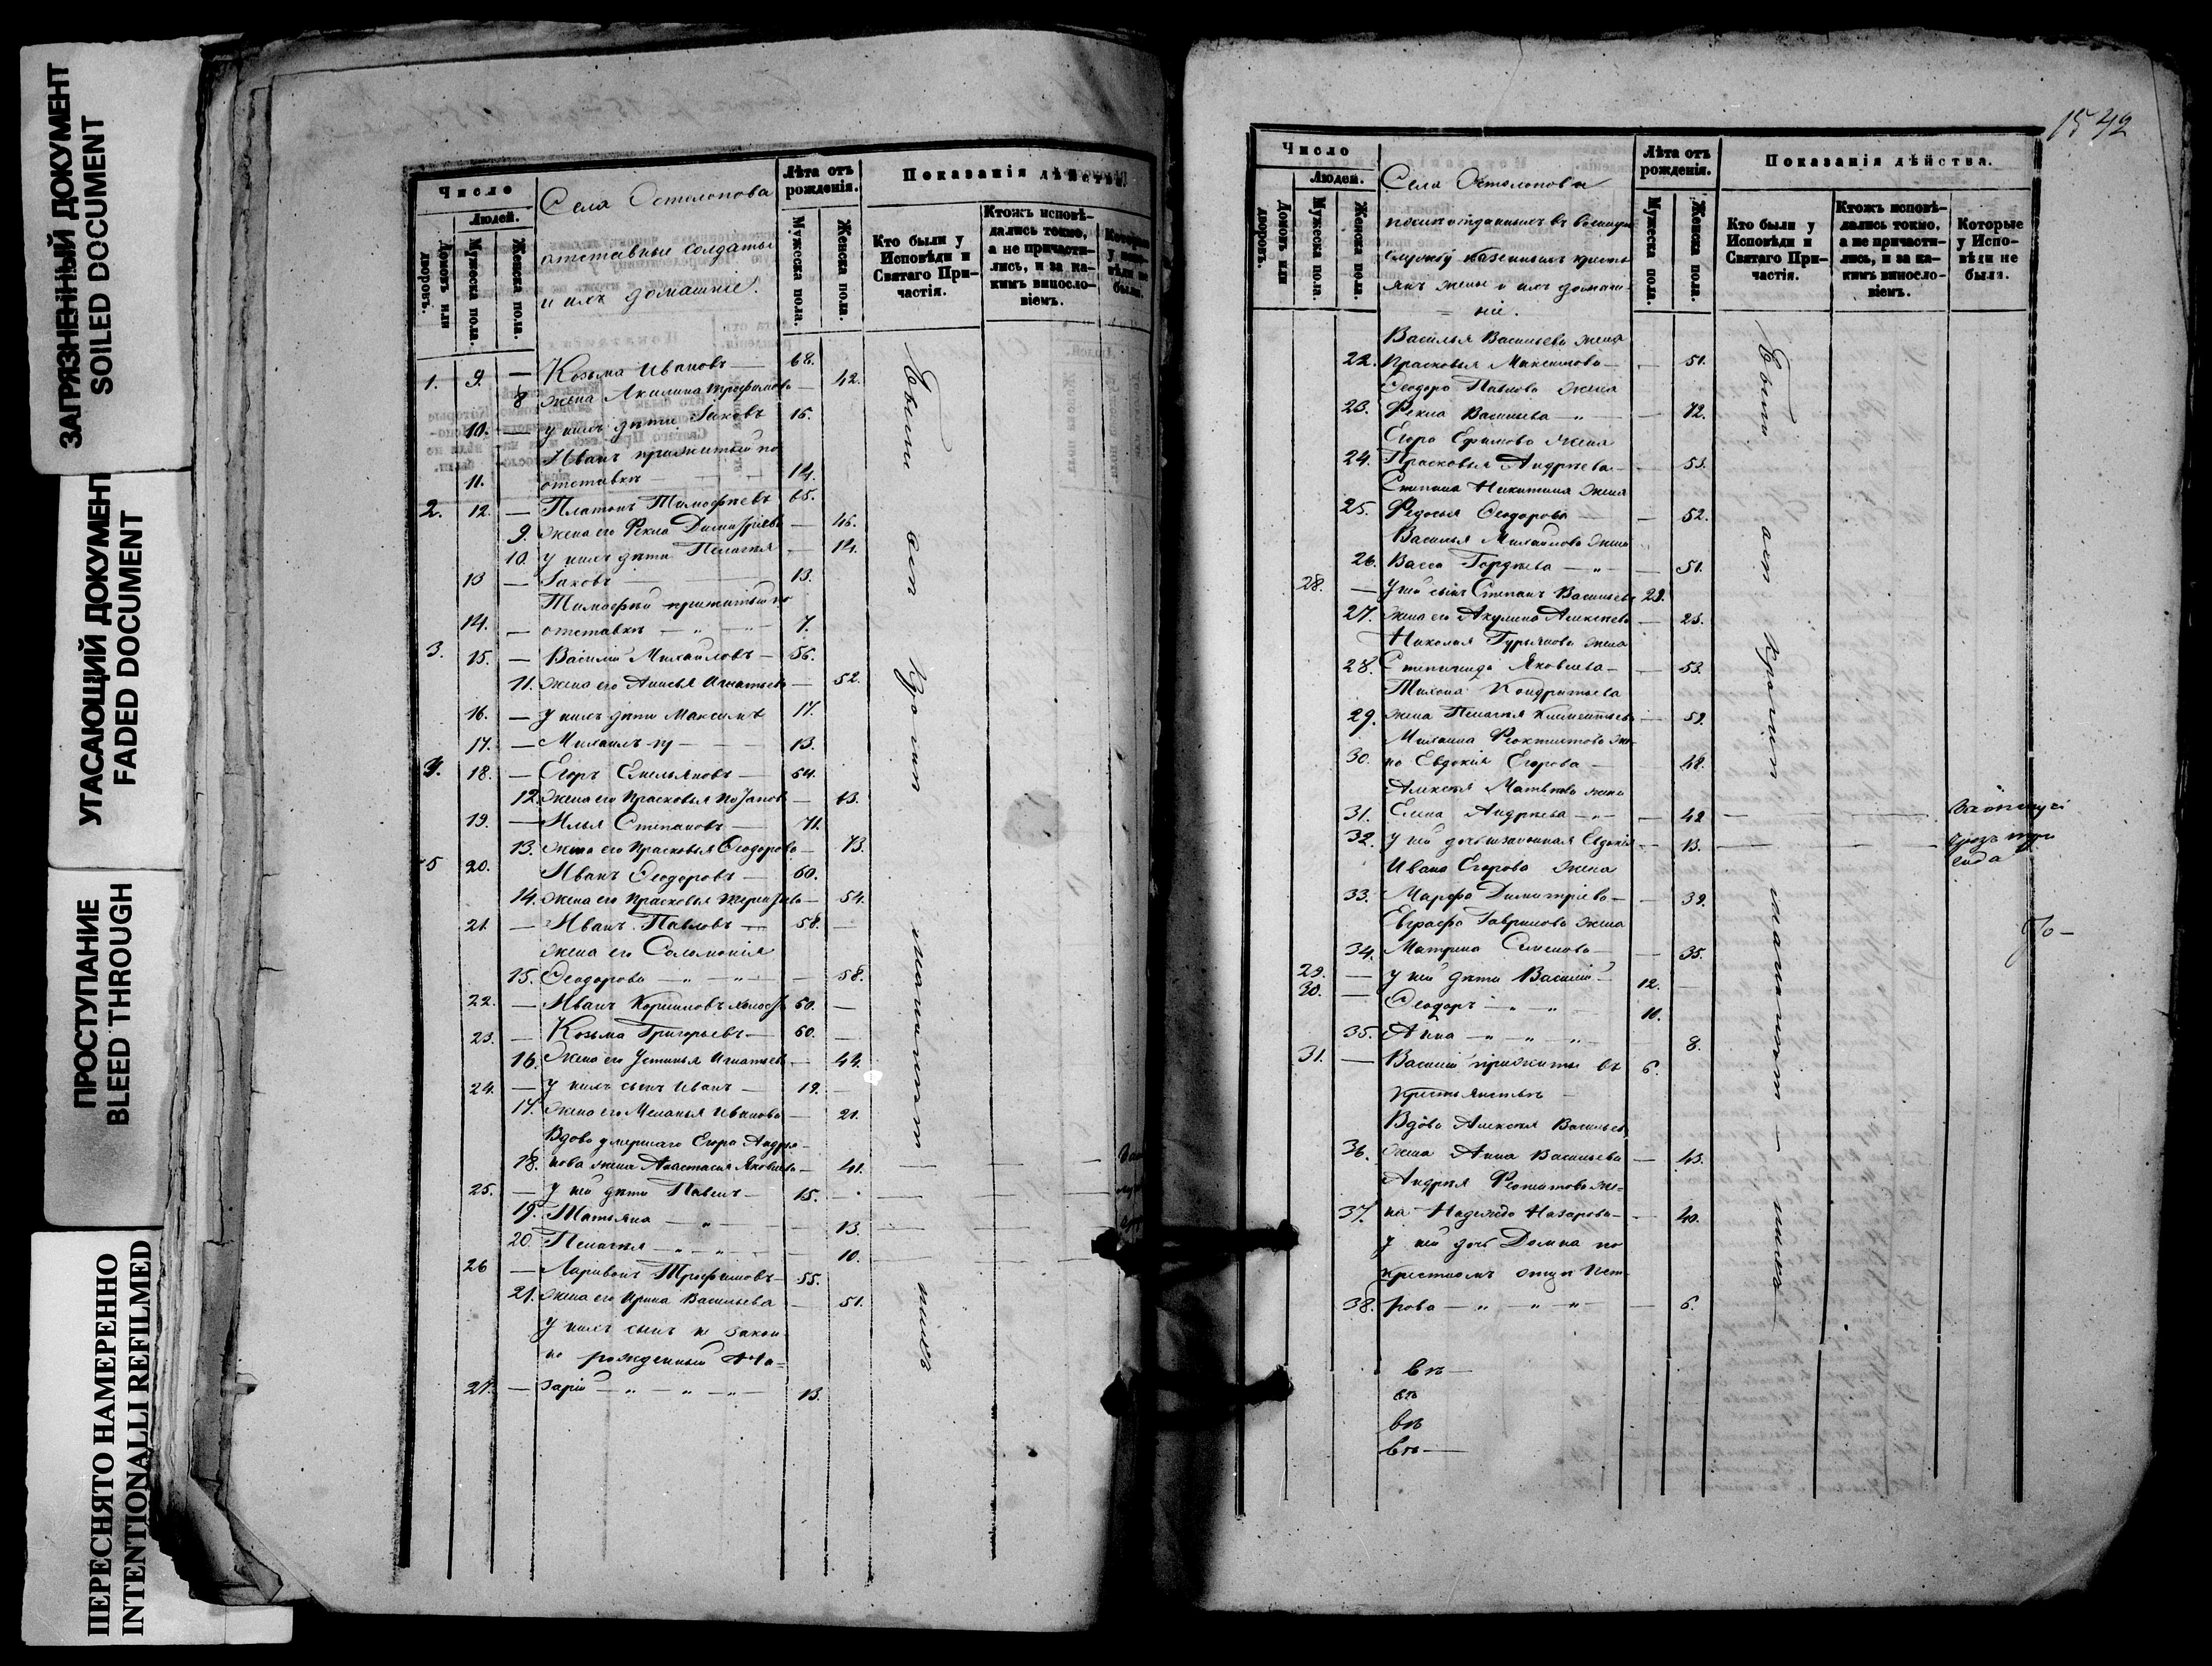 ЗАГРЯЗНЕННЫЙ ДОКУМЕНТ
SOILED DOCUMENT
УГАСАЮЩИЙ ДОКУМЕНТ
FADED DOCUMENT
ПРОСТУПАНИЕ
BLEED THROUGH
ПЕРЕСНЯТО НАМЕРЕННО
INTENTIONALLI REFILMED
Число
Людей.
Домовъ или дворовъ.
Мужеска пола.
Женска пола
Села Остолопова
отставные солдаты
и ихъ домашніе.
Лѣта отъ рожденія.
Мужеска пола.
Женска пола.
Показанія дѣйства.
Кто были у Исповѣди и Святаго Причастія.
Ктожъ исповѣдались токмо, а не причастились, и за какимъ винословіемъ.
1. 9. — Козьма Ивановъ — 68.
8 жена Акилина Трофимова — 42.
10. — у нихъ дѣти Іаковъ 15.
Иванъ прижитый по
11. отставкѣ — 14.
2. 12. — Платонъ Тимофѣевъ 65.
9. жена его Фекла Димитріева — 46.
10. у нихъ дѣти Пелагія — 14.
13 — Іаковъ — 13.
Тимофей прижитый по
14. — отставкѣ — 7.
3. 15. — Василій Михайловъ — 56.
11. жена его Анисья Игнатьева — 52.
16. — у нихъ дѣти Максимъ 17.
17. — Михаилъ — 13.
4. 18. — Егоръ Емельяновъ — 64.
12. жена его Прасковья — 63.
19. — Илья Степановъ — 71.
13. жена его Прасковья Ѳеодорова — 73.
5 20. Иванъ Ѳеодоровъ — 60.
14. жена его Прасковья — 54.
21. — Иванъ Павловъ — 58. —
жена его Соломонія
15. Ѳеодорова — 58.
22. — Иванъ 60. —
23. — Козьма Григорьевъ — 60. —
16. жена его Устинья Игнатьева — 44.
24. — у нихъ сынъ Иванъ — 19. —
17. жена его Меланья Иванова — 21.
Вдова умершаго Егора Андрея-
18. нова жена Анастасія Яковлева — 41. —
25. — у ней дѣти Павелъ — 15. —
19. Татьяна — 13. —
20. Пелагія — 10. —
26 — Ларивонъ Трофимовъ — 55.
21. жена его Ирина Васильева — 51.
у нихъ сынъ не закон-
но рожденный На-
27. — зарій — 13.
1542
Число
Людей.
Домовъ или дворовъ.
Мужеска пола.
Женска пола.
Села Остолопова
отданныхъ въ военную
службу казенныхъ кресть-
янъ жены и ихъ домаш-
ніе.
Лѣта отъ рожденія.
Мужеска пола.
Женска пола.
Показанія дѣйства.
Кто были у Исповѣди и Святаго Причастія.
Ктожъ исповѣдались токмо, а не причастились, и за какимъ винословіемъ.
Которые у Исповѣди не были.
Василья Васильева жена
22. Прасковья Максимова — 51.
Ѳеодора Павлова жена
23. Фекла Васильева — 72.
Егора Ефимова жена
24. Прасковья Андреева — 53.
Степана Никитина жена
25. Федосья Ѳеодорова — 52.
Василья Михайлова жена
26. Васса Гордѣева — 51.
28. — у ней сынъ Степанъ Васильевъ 29.
27. жена его Акулина Алексѣева — 25.
Николая Гурьянова жена
28. Степанида Яковлева — 53.
Тихона Кондратьева
29. жена Пелагія Климентьева — 59.
Михаила Феоктистова же-
30. на Евдокія Егорова — 48.
Алексѣя Матвѣева жена
31. Елена Андреева — 42 —
32. у ней дочь незаконная Евдокія — 13. —
Ивана Егорова жена
33. Марфа Димитріева — 39.
Евграфа Гаврилова жена
34. Матрена Семенова — 35.
29. — у ней дѣти Василій 12.
30. — Ѳеодоръ — 10.
35. Анна — 8.
31. — Василій прижитый въ 6.
крестьянствѣ —
Вдова Алексѣя Васильева
36. жена Анна Васильева — 43.
Андрея же-
37. на Надежда Назарова — 40.
у ней дочь Домна по
крестномъ отцѣ Пет-
38. рова — 6.